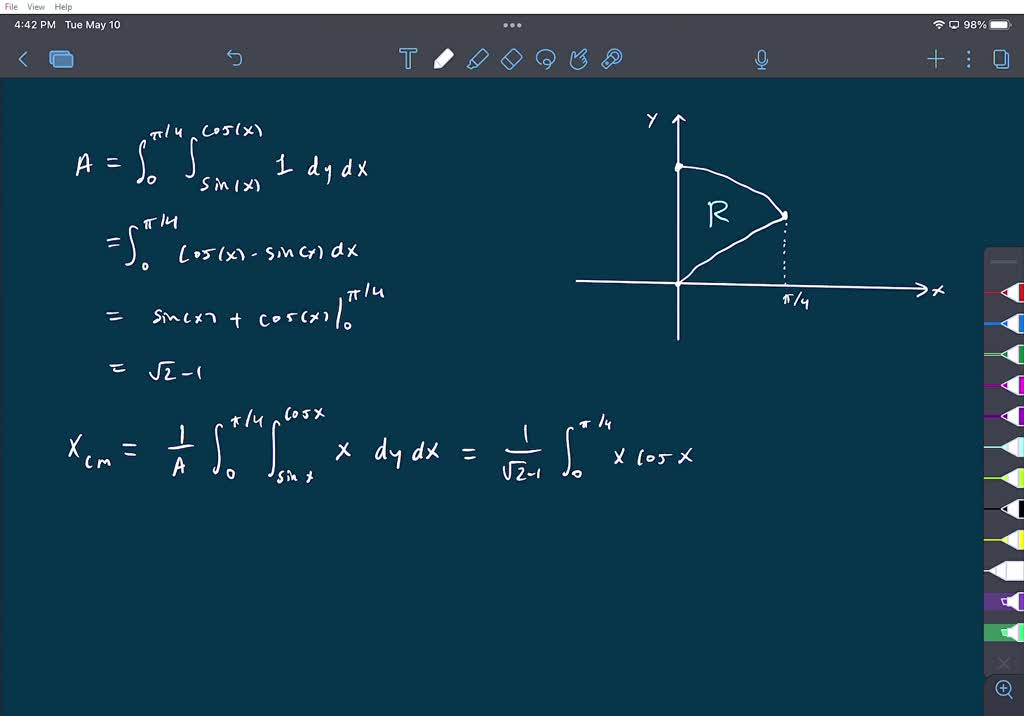 File View Help
4:42 PM Tue May 10
98%
T
A = ∫₀^π/4 ∫_sin(x)^cos(x) 1 dy dx
= ∫₀^π/4 cos(x) - sin(x) dx
= sin(x) + cos(x) |₀^π/4
= √2 - 1
y
R
π/4
x
X_cm = 1/A ∫₀^π/4 ∫_sin x^cos x x dy dx = 1/(√2-1) ∫₀^π/4 x cos x